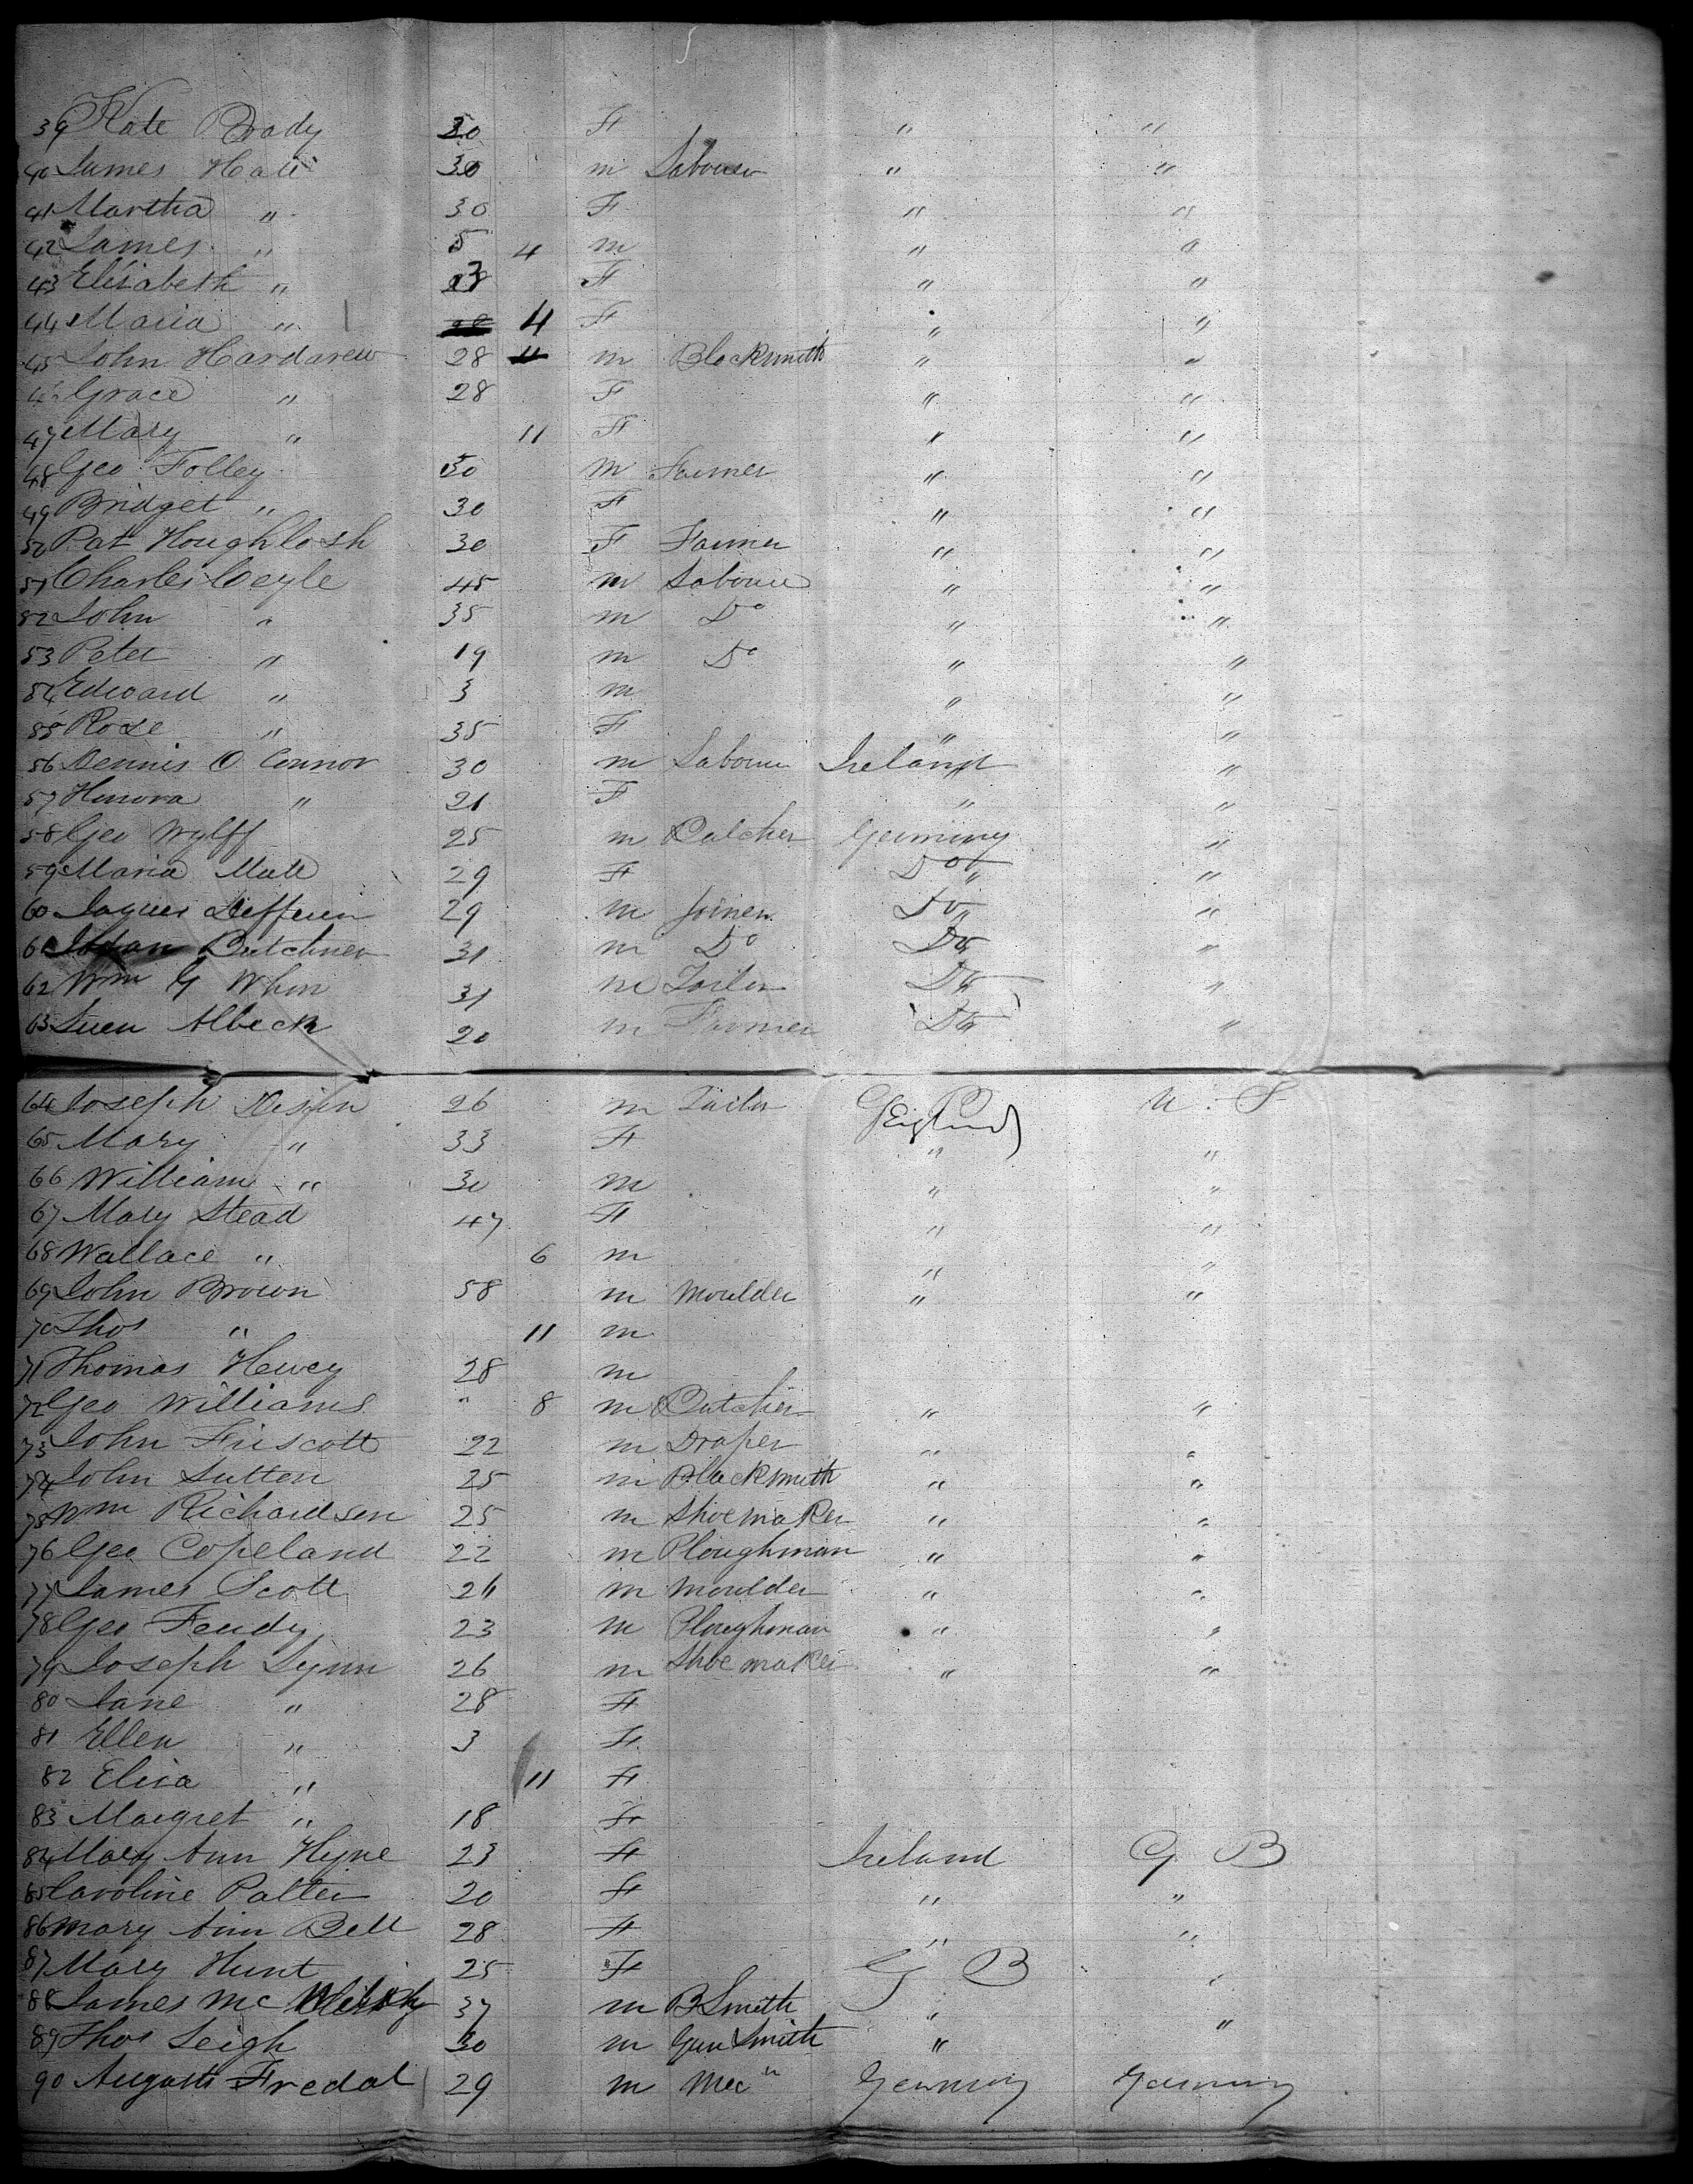 39 Kate Brady 30 F " "
40 James Hall 30 m Labourer " "
41 Martha " 30 F " "
42 James " 5 4 m " "
43 Elisabeth " 3 F " "
44 Maria " 4 F " "
45 John Hardarew 28 m Blacksmith " "
46 Grace " 28 F " "
47 Mary " 11 F " "
48 Geo Folley 30 m Farmer " "
49 Bridget " 30 F " "
50 Pat Houghlosh 30 F Farmer " "
51 Charles Coyle 45 m Labourer " "
52 John " 35 m Do " "
53 Peter " 19 m Do " "
54 Edward " 3 m " "
55 Rose " 35 F " "
56 Dennis O Connor 30 m Labourer Ireland "
57 Honora " 21 F " "
58 Geo Wylff 25 m Butcher Germany "
59 Maria Mull 29 F Do "
60 Jaques 29 m Joiner Do "
61 Butchner 31 m Do Do "
62 Wm G Whin 31 m Tailor Do "
63 Suen Albeck 20 m Farmer Do "
64 Joseph 26 m Tailor England U. S
65 Mary " 33 F " "
66 William " 30 m " "
67 Mary Stead 47 F " "
68 Wallace " 6 m " "
69 John Brown 58 m Moulder " "
70 Thos " 11 m
71 Thomas Hewey 28 m
72 Geo Williams " 8 m Butcher " "
73 John Friscott 22 m Draper " "
74 John Sutton 25 m Blacksmith " "
75 Wm Richardson 25 m Shoemaker " "
76 Geo Copeland 22 m Ploughman " "
77 James Scott 24 m Moulder " "
78 Geo Fendy 23 m Ploughman " "
79 Joseph Lynn 26 m Shoemaker " "
80 Jane " 28 F
81 Ellen " 3 F
82 Eliza " 11 F
83 Margret " 18 F
84 Mary Ann Hyne 23 F Ireland G B
85 Caroline Patter 20 F " "
86 Mary Ann Bell 28 F " "
87 Mary Hunt 25 F G B "
88 James Mc 37 m B Smith " "
89 Thos Leigh 30 m Gun Smith "
90 August Fredal 29 m Mec" Germany Germany